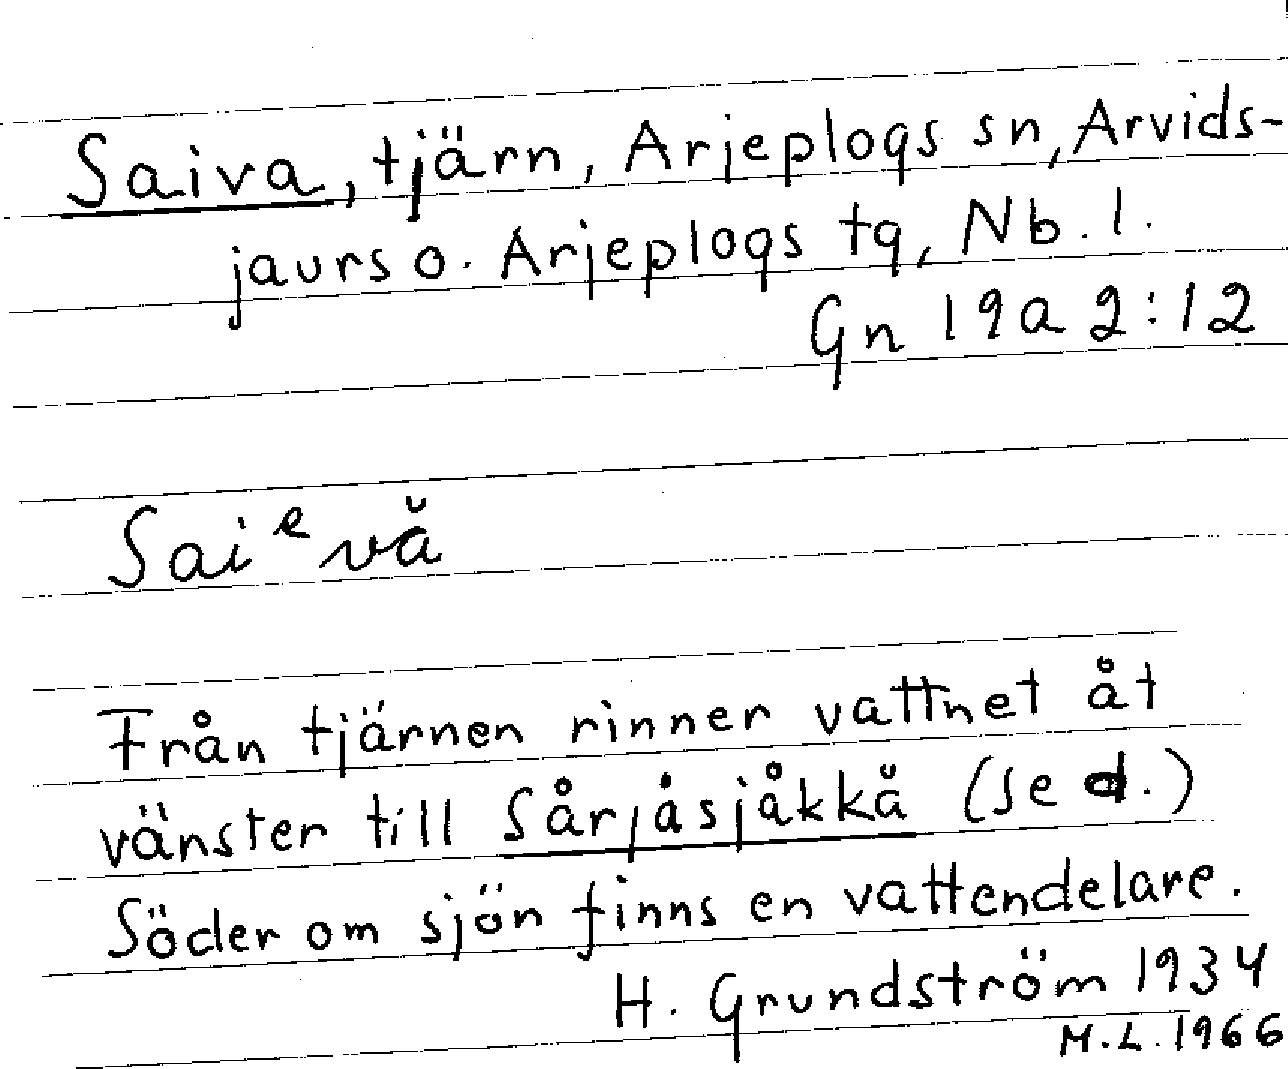 Saiva, tjärn, Arjeplogs sn, Arvids-
jaurs o. Arjeplogs tg, Nb. l.
Gn 19a 2:12
Saiᵉvă
Från tjärnen rinner vattnet åt
vänster till Sårjåsjåkkă (se d.)
Söder om sjön finns en vattendelare.
H. Grundström 1934
M.L. 1966